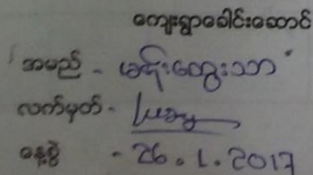 ကျေးရွာခေါင်းဆောင်
အမည် - မောင်းထွေးသာ
လက်မှတ် -
နေ့စွဲ - 26.1.2017